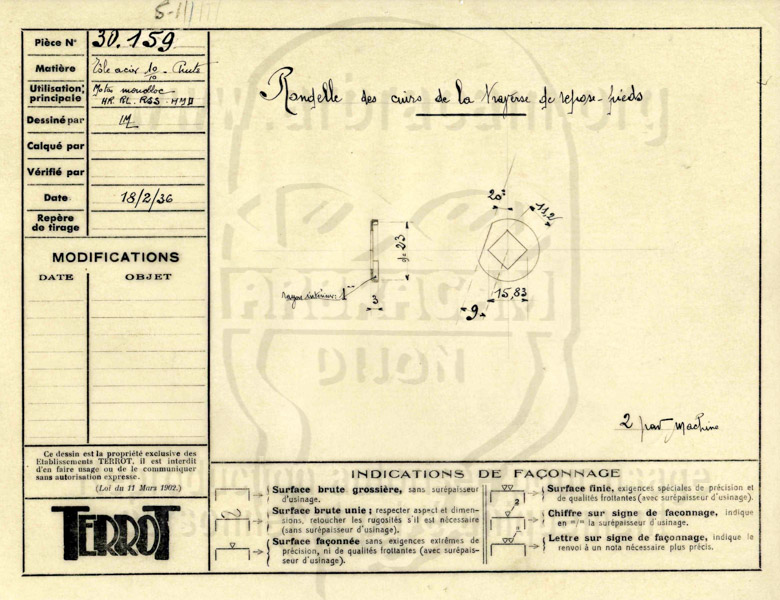 5-11
Pièce N° 30.159
Matière Tôle acier 10/10 - Brute
Utilisation principale Motos monobloc
HR. RL. RSS. HMD
Dessiné par
Calqué par
Vérifié par
Date 18/2/36
Repère de tirage
MODIFICATIONS
DATE OBJET
Rondelle des cuirs de la Traverse de repose-pieds
20°
11,2
de 23
rayon intérieur: 1
3
15,83
9
2 par machine
www.arbracam.org
DIJON
Ce dessin est la propriété exclusive des
Etablissements TERROT, il est interdit
d'en faire usage ou de le communiquer
sans autorisation expresse.
(Loi du 11 Mars 1902.)
TERROT
INDICATIONS DE FAÇONNAGE
Surface brute grossière, sans surépaisseur
d'usinage.
Surface brute unie; respecter aspect et dimen-
sions, retoucher les rugosités s'il est nécessaire
(sans surépaisseur d'usinage).
Surface façonnée sans exigences extrêmes de
précision, ni de qualités frottantes (avec surépais-
seur d'usinage).
Surface finie, exigences spéciales de précision et
de qualités frottantes (avec surépaisseur d'usinage).
2
Chiffre sur signe de façonnage, indique
en m/m la surépaisseur d'usinage.
Lettre sur signe de façonnage, indique le
renvoi à un nota nécessaire plus précis.